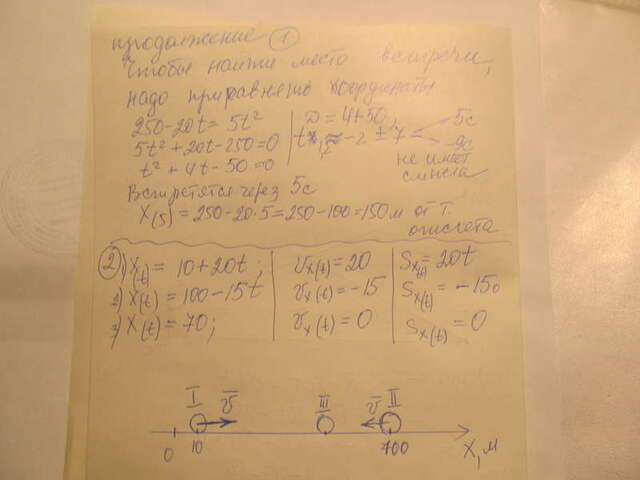 продолжение ①
Чтобы найти место встречи,
надо приравнять координаты
250-20t = 5t²
5t²+20t-250=0
t²+4t-50=0
D = 4+50;
-2 ± 7
5с
-9с
не имеет
смысла
Встретятся через 5с
X(5) = 250-20·5=250-100=150м от т.
отсчета
② 1) X(t) = 10+20t;
2) X(t) = 100-15t
3) X(t) = 70;
Vx(t) = 20
Vx(t) = -15
Vx(t) = 0
Sx(t) = 20t
Sx(t) = -15
Sx(t) = 0
I III II
v v
0 10 100 X, м